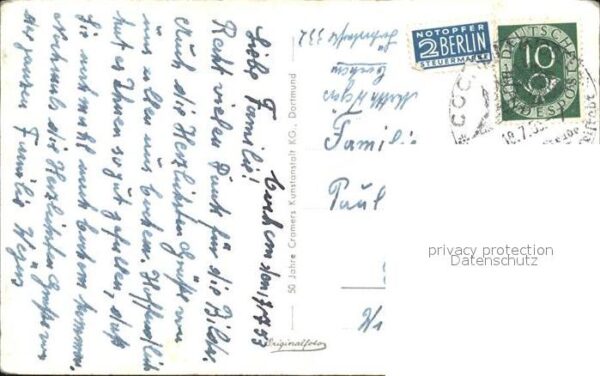 Cochem den 17.7.53
Liebe Familie!
Recht vielen Dank für die Bilder
Auch die herzlichsten Grüße von
uns allen aus Cochem. Hoffentlich
hat es Ihnen so gut gefallen, daß
Sie auch mal nach Cochem kommen.
Nochmals die herzlichsten Grüße von
der ganzen Familie
50 Jahre Cramers Kunstanstalt KG., Dortmund
Originalfoto
Cochem
Familie
Paul
NOTOPFER
2 BERLIN
STEUERMARKE
DEUTSCHE
10
BUNDESPOST
COC
18.7.53
privacy protection
Datenschutz